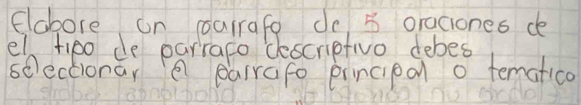 Elabore un parrafo de 5 oraciones de
el tipo de parrafo descriptivo debes
selecctionar el parrafo principal o tematico